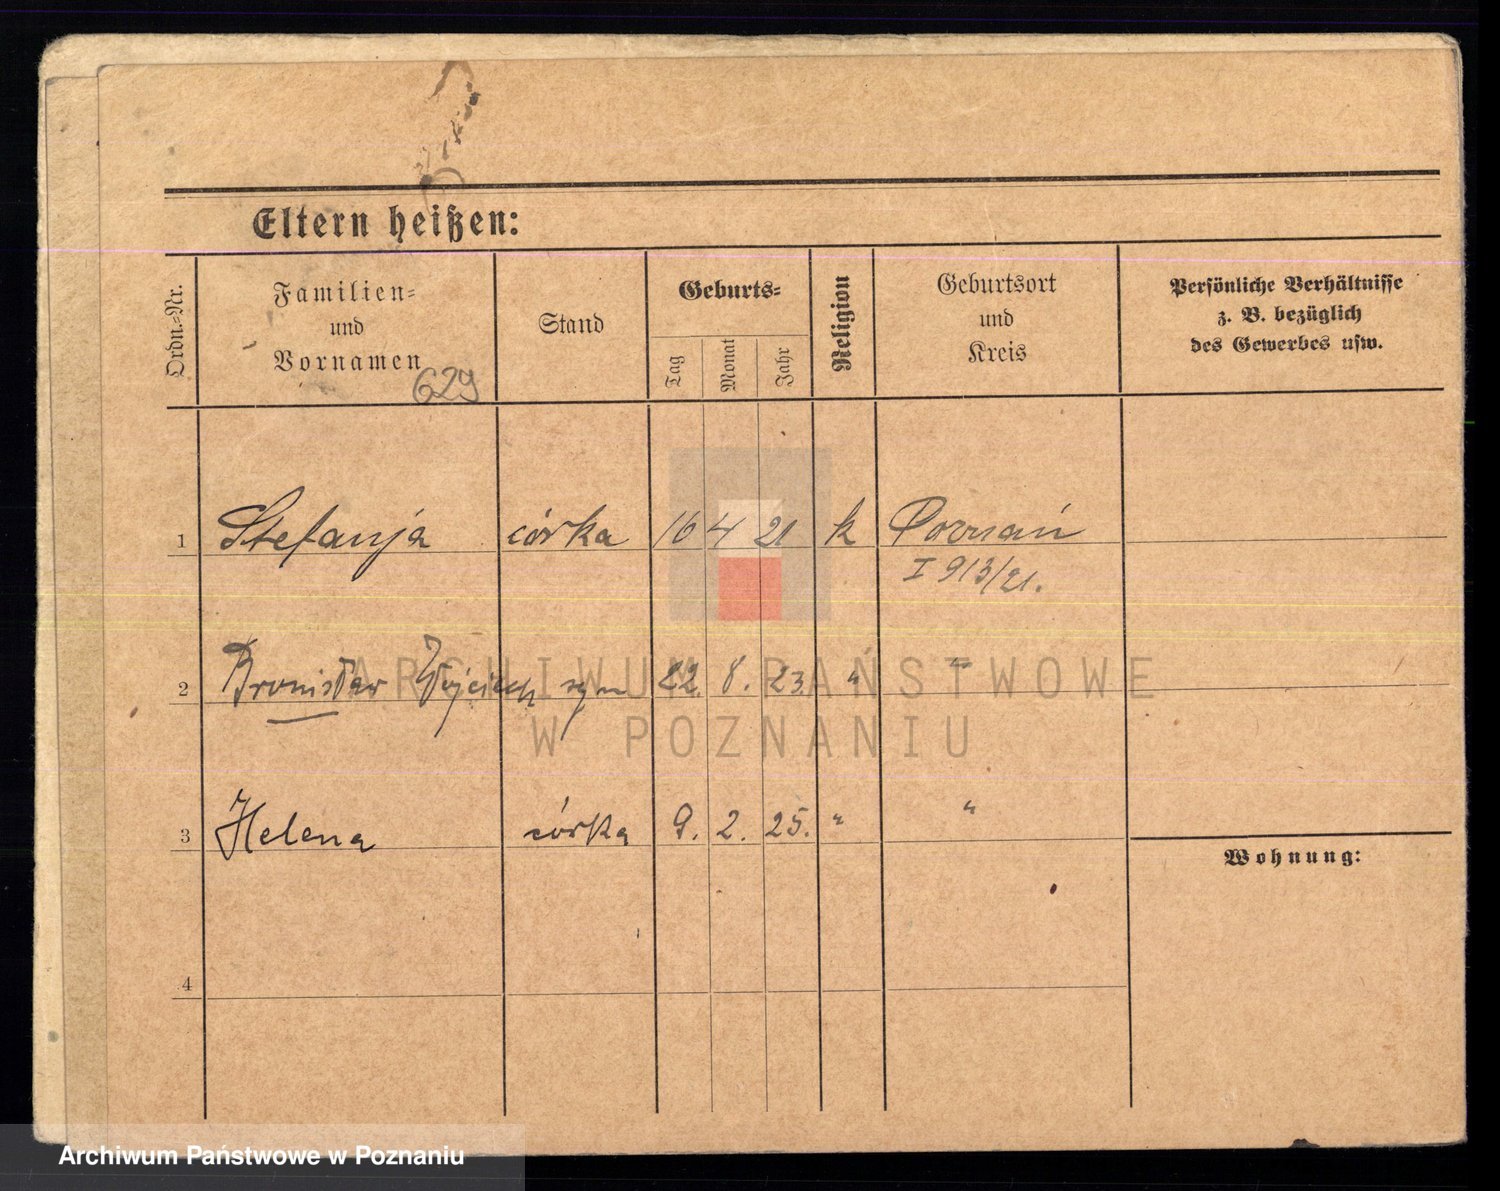 Eltern heißen:
Ordn.=Nr.
Familien=
und
Vornamen
629
Stand
Geburts=
Tag
Monat
Jahr
Religion
Geburtsort
und
Kreis
Persönliche Verhältnisse
z. B. bezüglich
des Gewerbes usw.
1 Stefanja córka 16 4 21 k Poznań
I 913/21.
2 Bronisław Wojciech syn 22. 8. 23. " "
ARCHIWUM PAŃSTWOWE
W POZNANIU
3 Helena córka 9. 2. 25. " "
Wohnung:
4
Archiwum Państwowe w Poznaniu